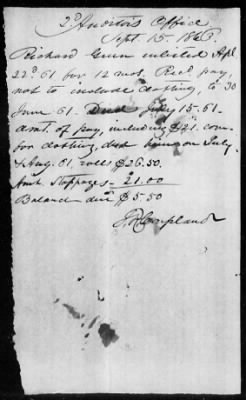 2d Auditors Office
Sept 15. 1863.
Richard Gunn enlisted Apl
22d 61 for 12 mos. Recd pay,
not to include clothing, to 30
June 61. Died July 15. 61.
Amt. of pay, including $21. com.
for clothing, due him on July
& Aug. 61, rolls $26.50.
Amt. Stoppages 21.00
Balance due $5.50
Copland